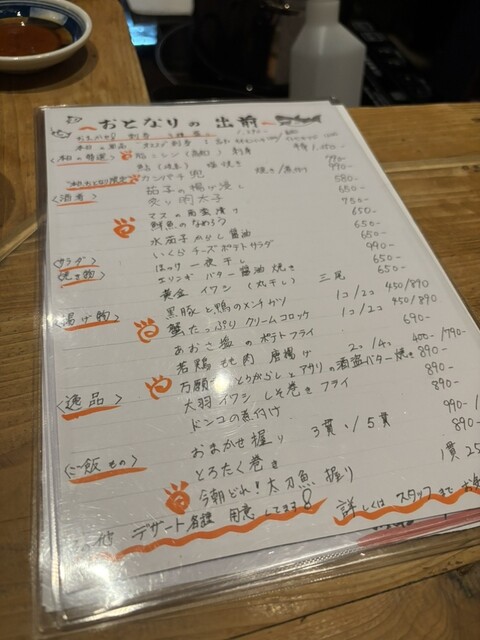 〜おとなりの 出前〜
おまかせ 刺身 三種盛
〈本日の特選〉 刺身
塩焼き
〈本日おとなり限定〉 カンパチ 兜 焼き/煮付け
〈酒肴〉 茄子の揚げ浸し 580-
炙り 明太子 650-
マスの南蛮漬け 750-
鮮魚のなめろう 650-
水茄子 からし醤油 650-
〈サラダ〉 いくらチーズポテトサラダ 990-
〈焼き物〉 ほっけ 一夜干し
エリンギ バター醤油焼き 650-
黄金イワシ (丸干し) 三尾
〈揚げ物〉 黒豚と鴨のメンチカツ 1コ/2コ 450/890
蟹たっぷりクリームコロッケ 1コ/2コ 450/890
あおさ塩のポテトフライ 690-
若鶏 もも肉 唐揚げ 2コ/4コ 400-/790-
〈逸品〉 万願寺とうがらしとアサリの酒盗バター焼き 890-
大羽イワシ しそ巻きフライ 890-
ドンコの煮付け 890-
〈ご飯もの〉 おまかせ握り 3貫/5貫 990-/
とろたく巻き 890-
今朝どれ!太刀魚 握り 1貫 25
の他 デザート各種 用意してます 詳しくは スタッフまで お